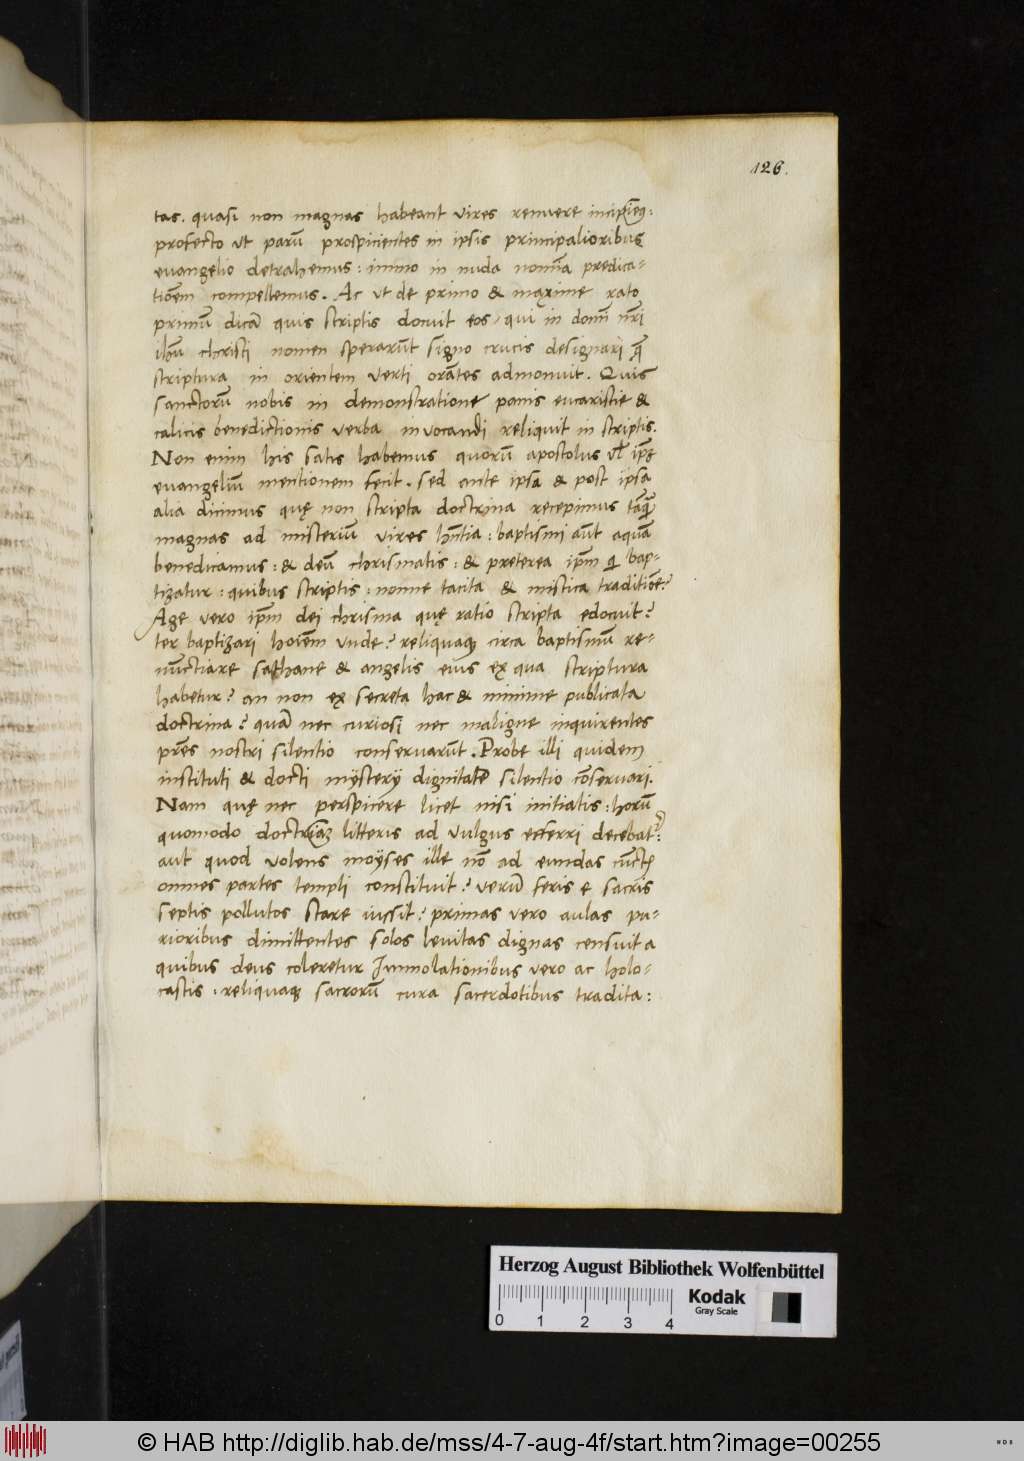 126.
tas. quasi non magnas habeant vires renuere
profecto ut parū prospicientes in ipsis principalioribus
euangelio detrahemus: immo in nuda predica-
tiōem compellemus. Ac ut de primo & maxime rato
primū dicā quis scriptis docuit eos, qui in
ihū christi nomen sperarūt signo crucis designari
scriptura in orientem verti orātes admonuit. Quis
sanctorū nobis in demonstratione panis eucaristie &
calicis benedictionis verba invocandi reliquit in scriptis.
Non enim his satis habemus quorū apostolus
euangeliū mentionem fecit. sed ante ipsa & post ipsa
alia dicimus quę non scripta doctrina recepimus
magnas ad misteriū vires : baptismi aūt aquā
benedicamus: & deū chrismatis: & preterea bap-
tizatur: quibus scriptis: nonne tacita & mistica traditiōe?
Age vero dei chrisma quę ratio scripta edocuit?
ter baptizari hoīem vnde? circa baptismū re-
nūctiare sathane & angelis eius ex qua scriptura
habetur? an non ex secreta hac & minime publicata
doctrina? quā nec curiosi nec maligne inquirentes
nostri silentio conservarūt. Probe illi quidem
instituti & docti mÿsterÿ dignitatē silentio cōservari.
Nam quę nec perspicere licet nisi initiatis: horū
quomodo litteris ad vulgus efferri decebat?:
aut quod volens moÿses ille nō ad eundas
omnes partes templi constituit? verū feris e sacris
septis pollutos stare iussit? primas vero aulas pu-
rioribus dimittentes solos levitas dignas censuit a
quibus deus coleretur Immolationibus vero ac holo-
castis. sacrorū cura sacerdotibus tradita:
Herzog August Bibliothek Wolfenbüttel
Kodak
Gray Scale
0 1 2 3 4
© HAB http://diglib.hab.de/mss/4-7-aug-4f/start.htm?image=00255